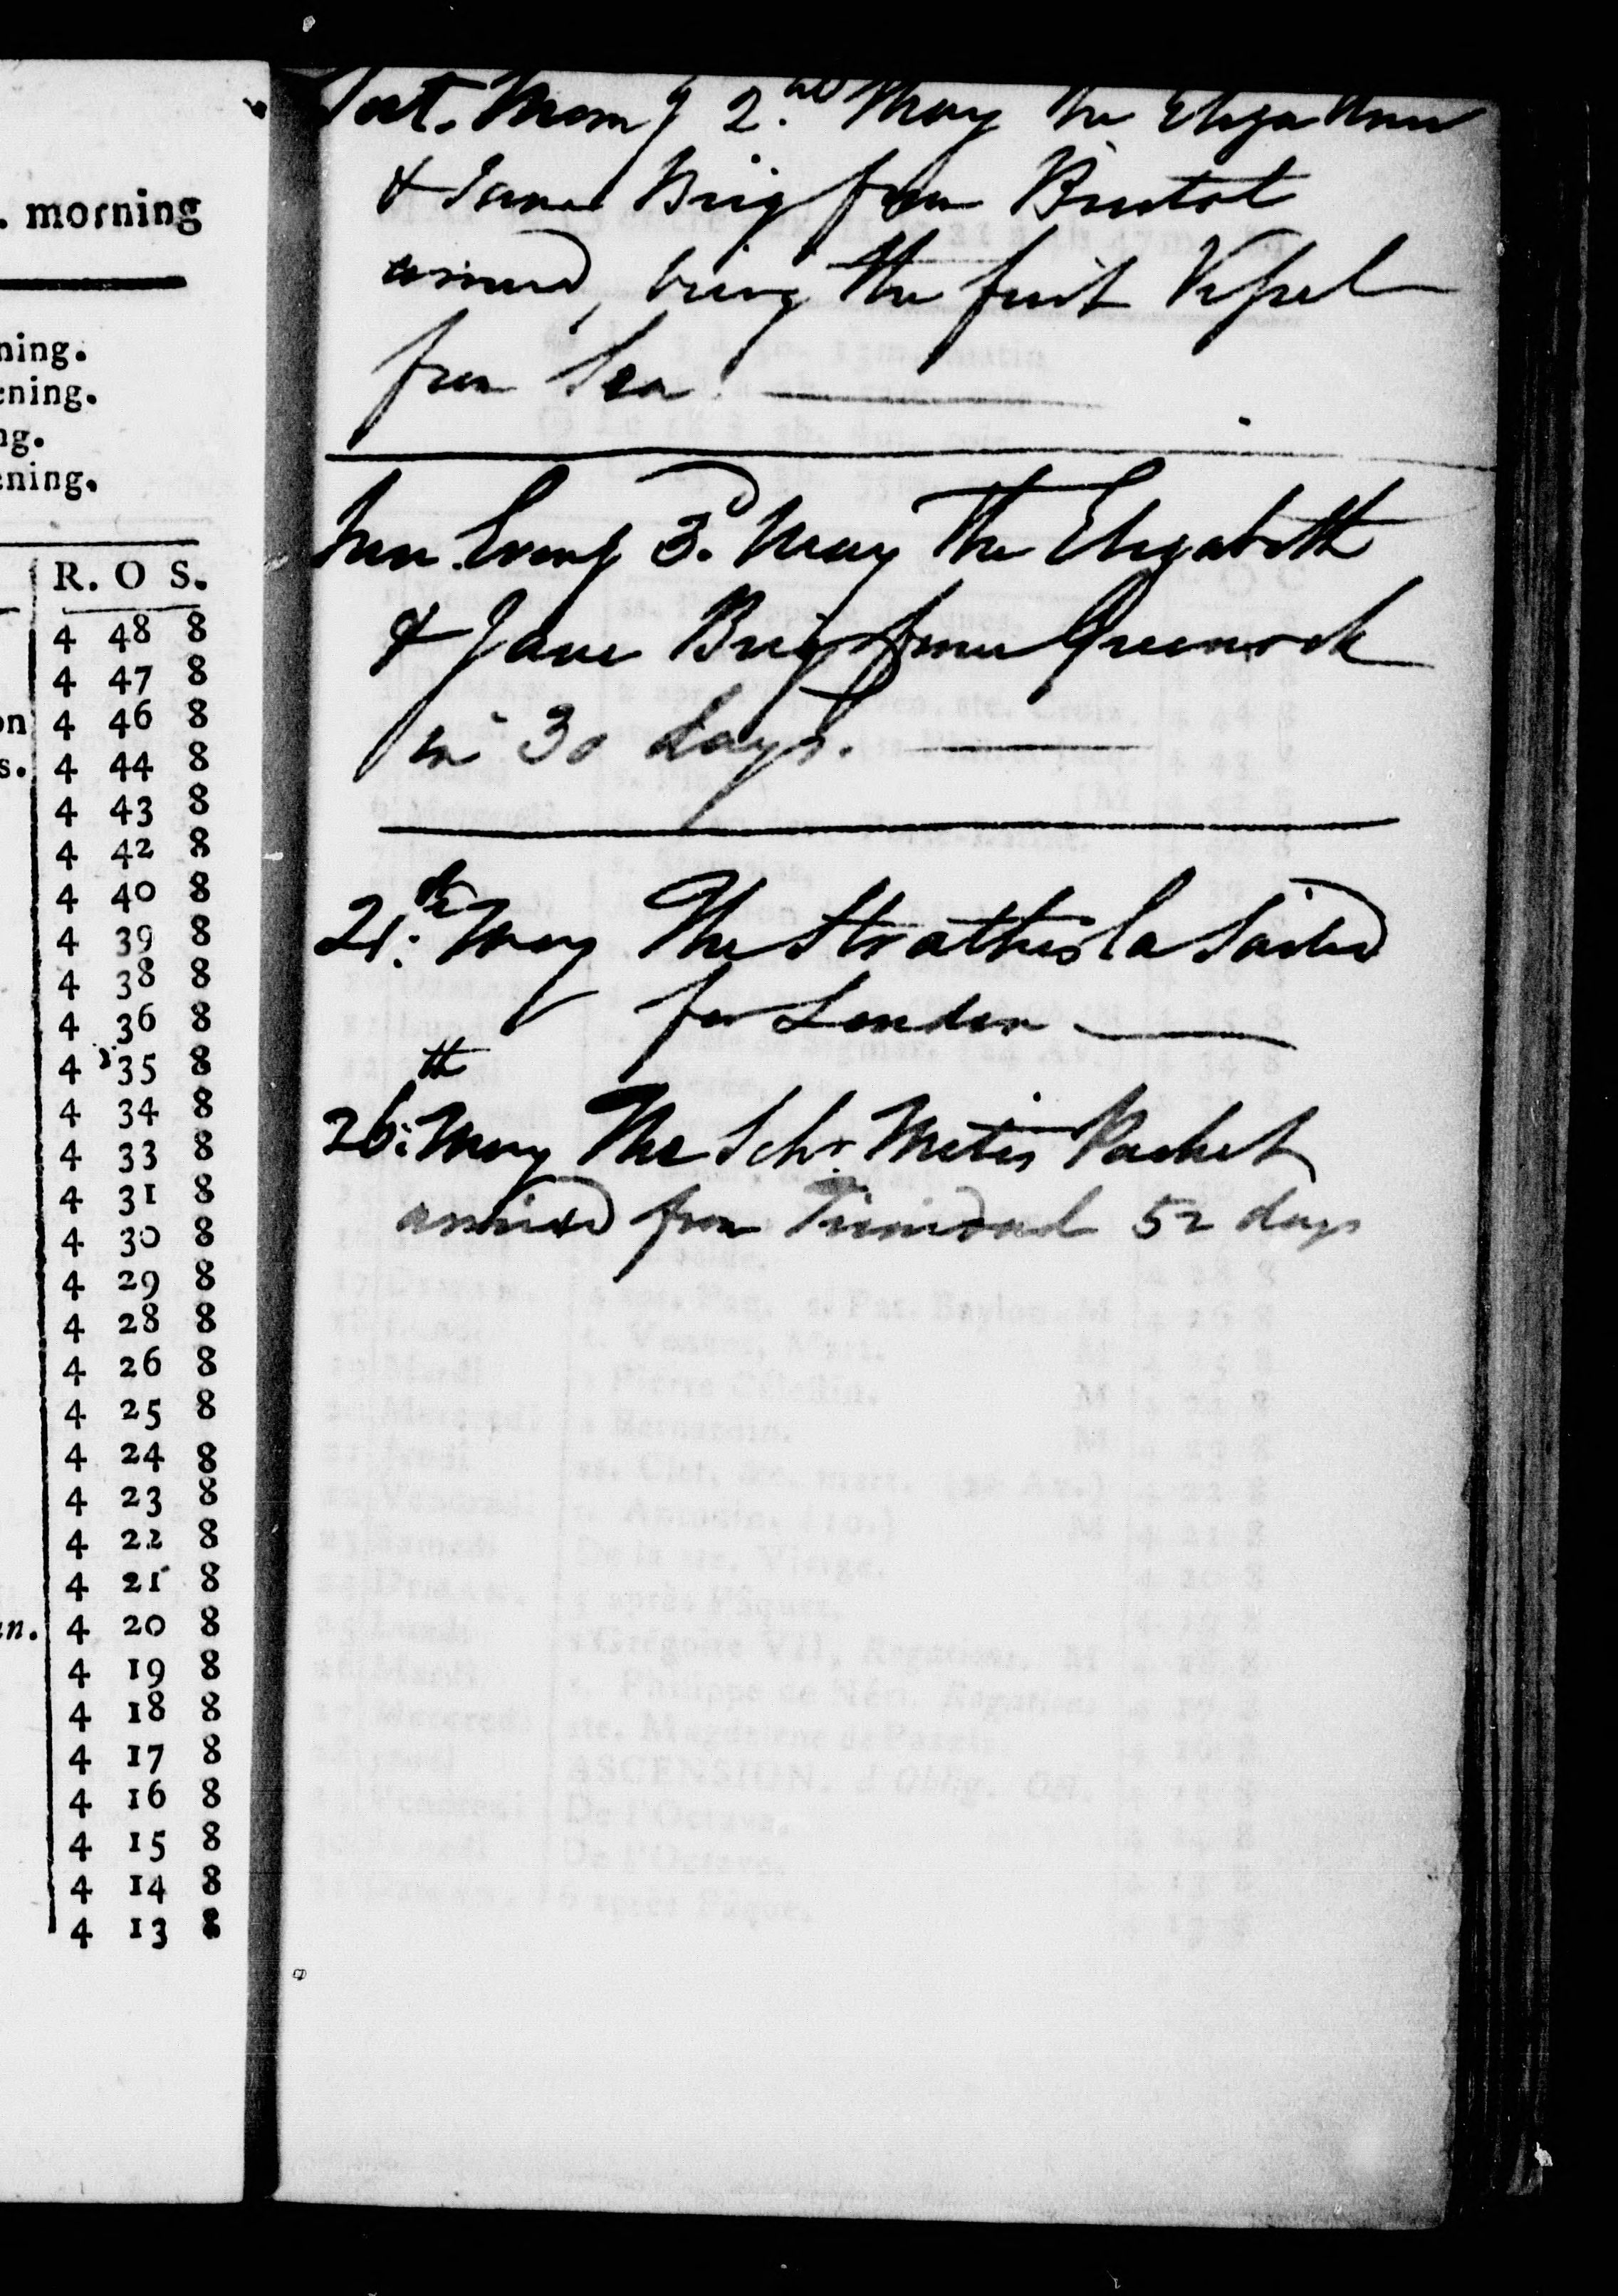 . morning
ning.
ening.
ng.
ening.
R. O S.
4 48 8
4 47 8
on 4 46 8
s. 4 44 8
4 43 8
4 42 8
4 40 8
4 39 8
4 38 8
4 36 8
4 35 8
4 34 8
4 33 8
4 31 8
4 30 8
4 29 8
4 28 8
4 26 8
4 25 8
4 24 8
4 23 8
4 22 8
4 21 8
an. 4 20 8
4 19 8
4 18 8
4 17 8
4 16 8
4 15 8
4 14 8
4 13 8
Sat. Morng 2nd May The Eliza
& Brig from Bristol
arrived, being the first Vessel
from Sea.
Sun. Eveng 3d May The Elizabeth
& Jane Brig from Greenock
in 30 days.
21.st May The Strathisla Sailed
for London
26th May The Schr. Metis Packet
arrived from Trinidad 52 days